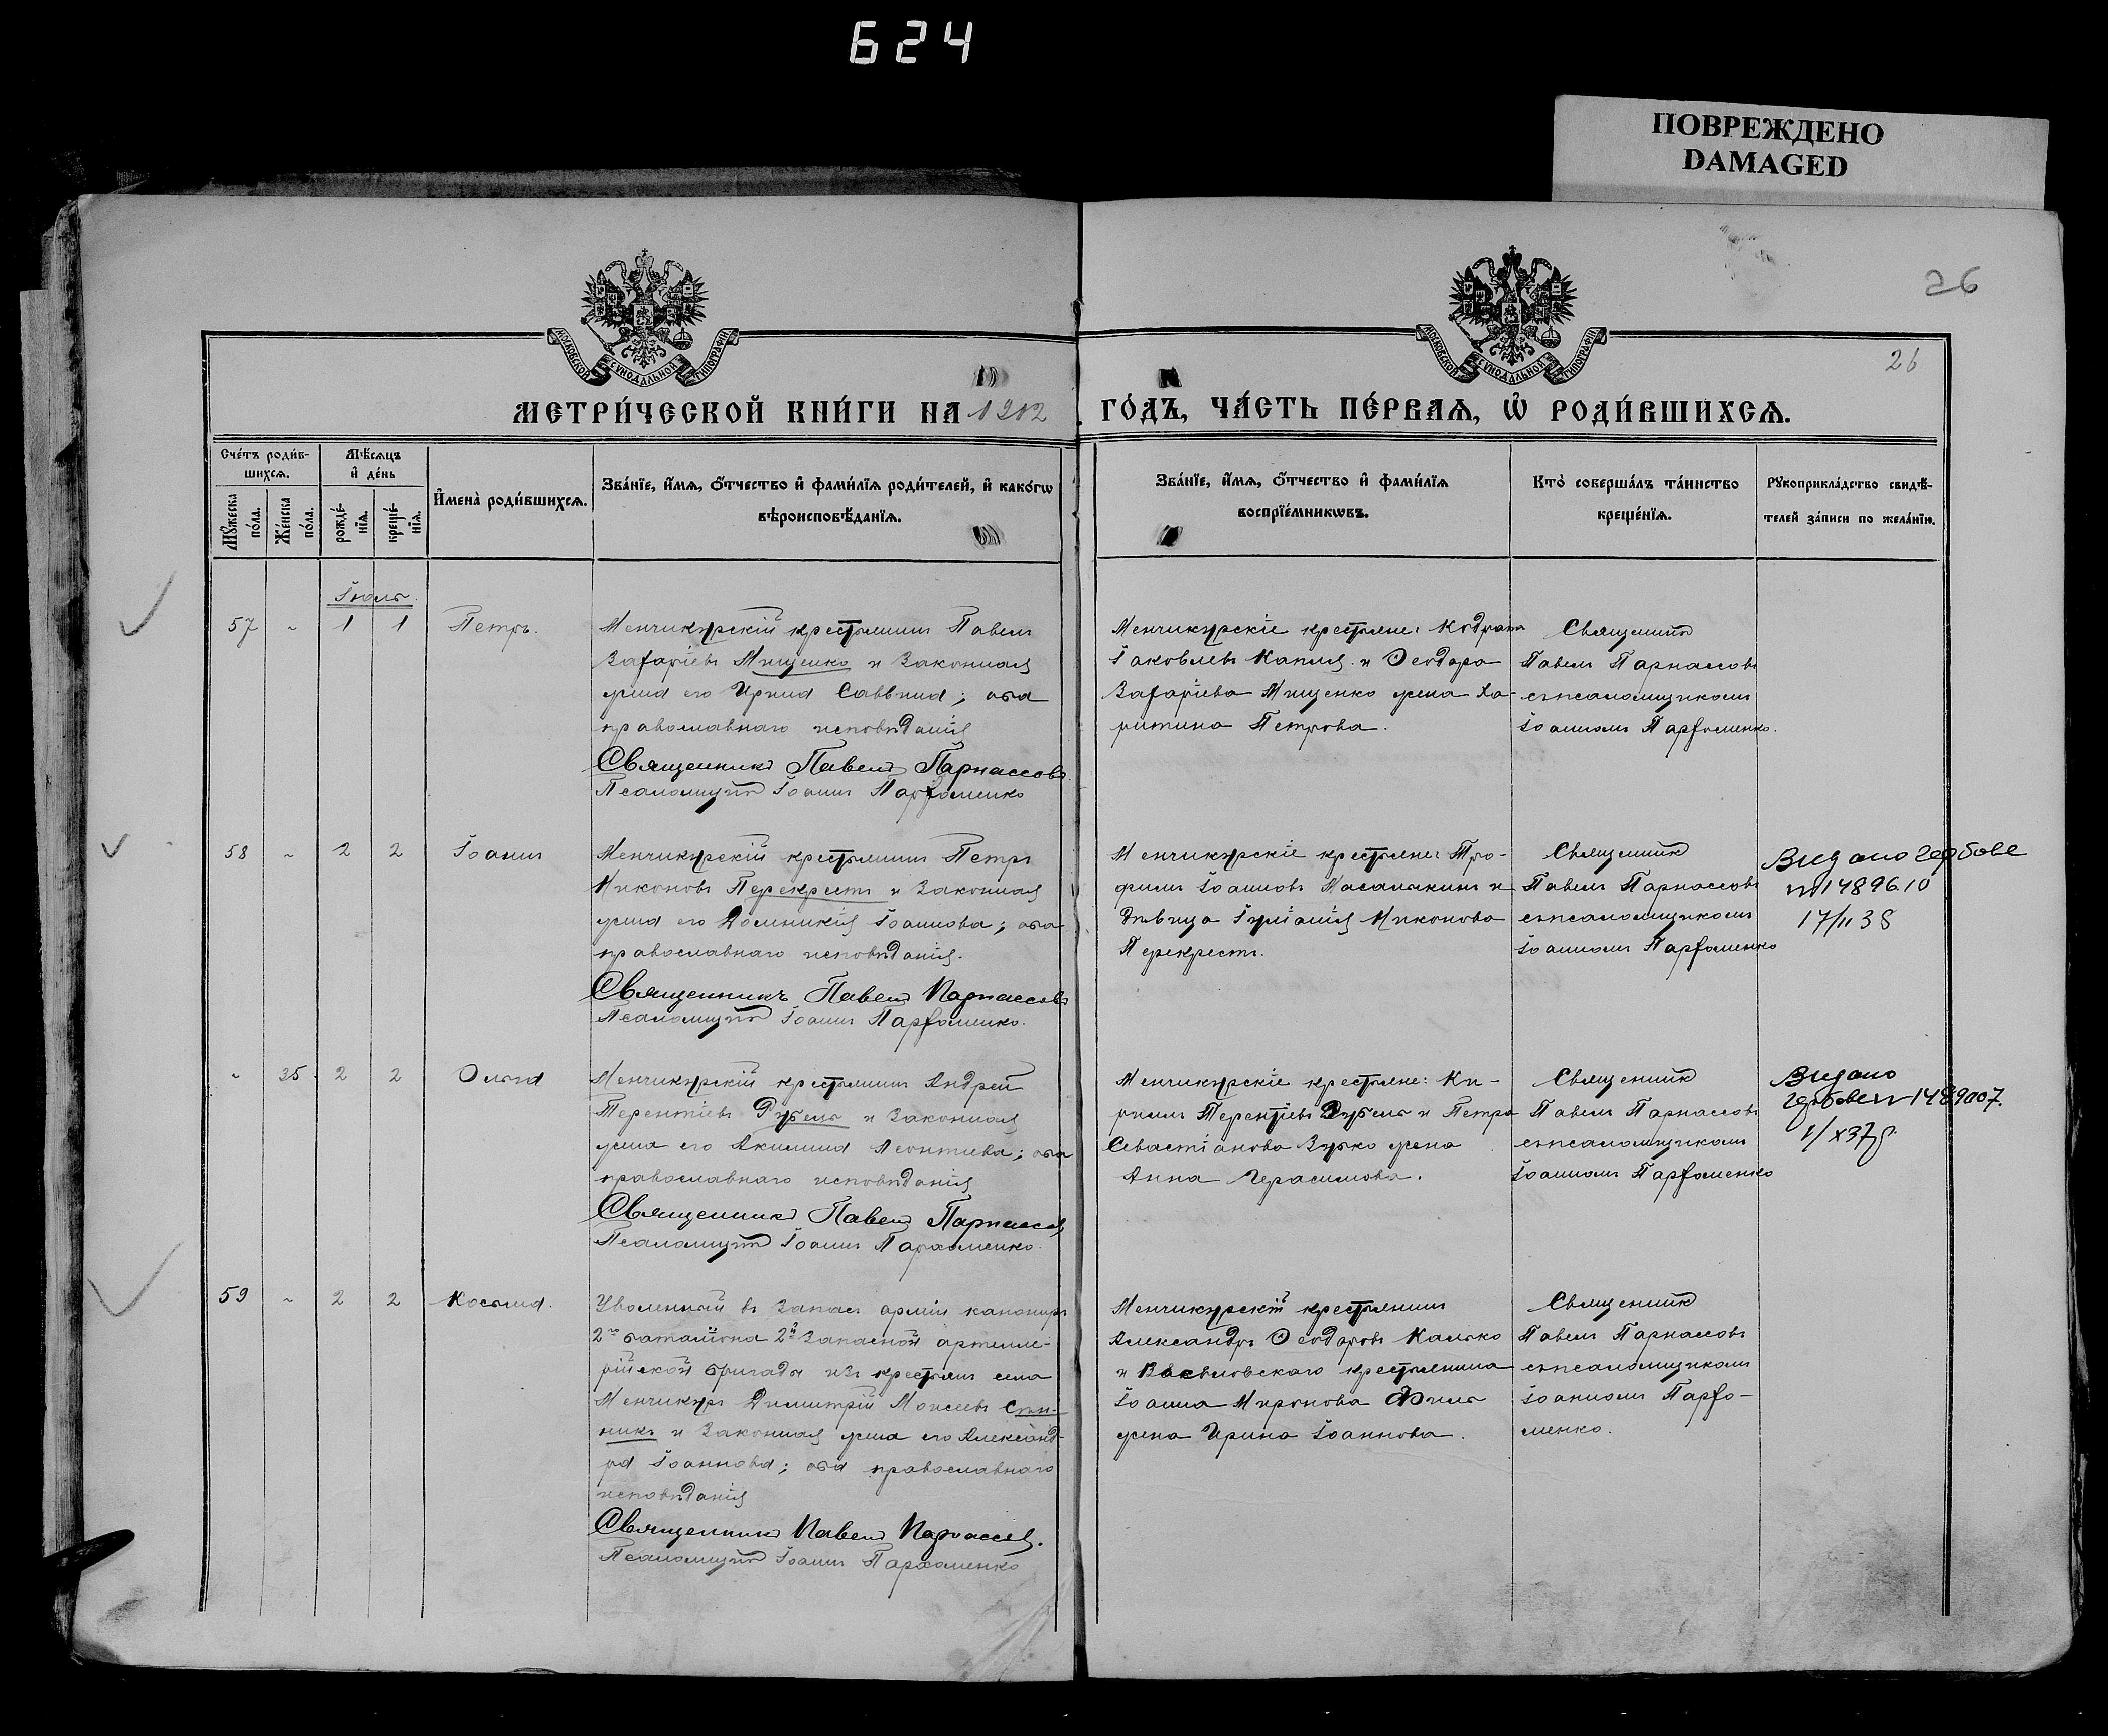 624
ПОВРЕЖДЕНО
DAMAGED
26
26
МОСКОВСКОЙ СѴНОДАЛЬНОЙ ТИПОГРАФІИ
МОСКОВСКОЙ СѴНОДАЛЬНОЙ ТИПОГРАФІИ
МЕТРИ́ЧЕСКОЙ КНИ́ГИ НА 1912 ГО́ДЪ, ЧА́СТЬ ПЕ́РВАѦ, Ѡ҆ РОДИ́ВШИХСѦ.
Сче́тъ роди́в-
шихсѧ.
Мꙋ́жеска по́ла.
Же́нска по́ла.
Мѣ́сѧцъ
и҆ де́нь
рожде́-
нїѧ.
креще́-
нїѧ.
И҆мена̀ роди́вшихсѧ.
Зва́нїе, и҆́мѧ, ѻ҆́тчество и҆ фами́лїѧ роди́телей, и҆ како́гѡ
вѣроисповѣ́данїѧ.
Зва́нїе, и҆́мѧ, ѻ҆́тчество и҆ фами́лїѧ
воспрїе́мникѡвъ.
Кто̀ соверша́лъ та́инство
креще́нїѧ.
Рꙋкоприкла́дство свидѣ́-
телей за́писи по жела́нїю.
Іюль.
57 „ 1 1 Петръ.
Менчикурскій крестьянинъ Павелъ
Захаріевъ Мищенко и законная
жена его Ирина Саввина; оба
православнаго исповѣданія
Священникъ Павелъ Парнассовъ
Псаломщикъ Іоаннъ Пархоменко
Менчикурскіе крестьяне: Кодратъ
Іаковлевъ Капля и Ѳеодора
Захаріева Мищенко жена Ха-
ритина Петрова.
Священникъ
Павелъ Парнассовъ
съ псаломщикомъ
Іоанномъ Пархоменко.
58 „ 2 2 Іоаннъ
Менчикурскій крестьянинъ Петръ
Никоновъ Перекрестъ и законная
жена его Домникія Іоаннова; оба
православнаго исповѣданія.
Священникъ Павелъ Парнассовъ
Псаломщикъ Іоаннъ Пархоменко.
Менчикурскіе крестьяне: Тро-
фимъ Іоанновъ Масалыкинъ и
дѣвица Іуліанія Никонова
Перекрестъ.
Священникъ
Павелъ Парнассовъ
съ псаломщикомъ
Іоанномъ Пархоменко
Видано гербове
1489610
17/II 38
„ 35 2 2 Ольга
Менчикурскій крестьянинъ Андрей
Терентіевъ Дубель и законная
жена его Акилина Леонтиева; оба
православнаго исповѣданія
Священникъ Павелъ Парнассовъ
Псаломщикъ Іоаннъ Пархоменко.
Менчикурскіе крестьяне: Ки-
риллъ Терентіевъ Дубель и Петра
Севастіанова Зурко жена
Анна Герасимова.
Священникъ
Павелъ Парнассовъ
съ псаломщикомъ
Іоанномъ Пархоменко
Видано
гербове 1489007.
1/X37р.
59 „ 2 2 Косьма.
Уволенный въ запасъ арміи канониръ
2го баталіона 2й запасной артилле-
рійской бригады изъ крестьянъ села
Менчикуръ Димитрій Моисеевъ
и законная жена его Александ-
ра Іоаннова; оба православнаго
исповѣданія
Священникъ Павелъ Парнассовъ.
Псаломщикъ Іоаннъ Пархоменко
Менчикурскій крестьянинъ
Александръ Ѳеодоровъ Калько
и крестьянина
Іоанна Миронова Филь
жена Ирина Іоаннова.
Священникъ
Павелъ Парнассовъ
съ псаломщикомъ
Іоанномъ Пархо-
менко.